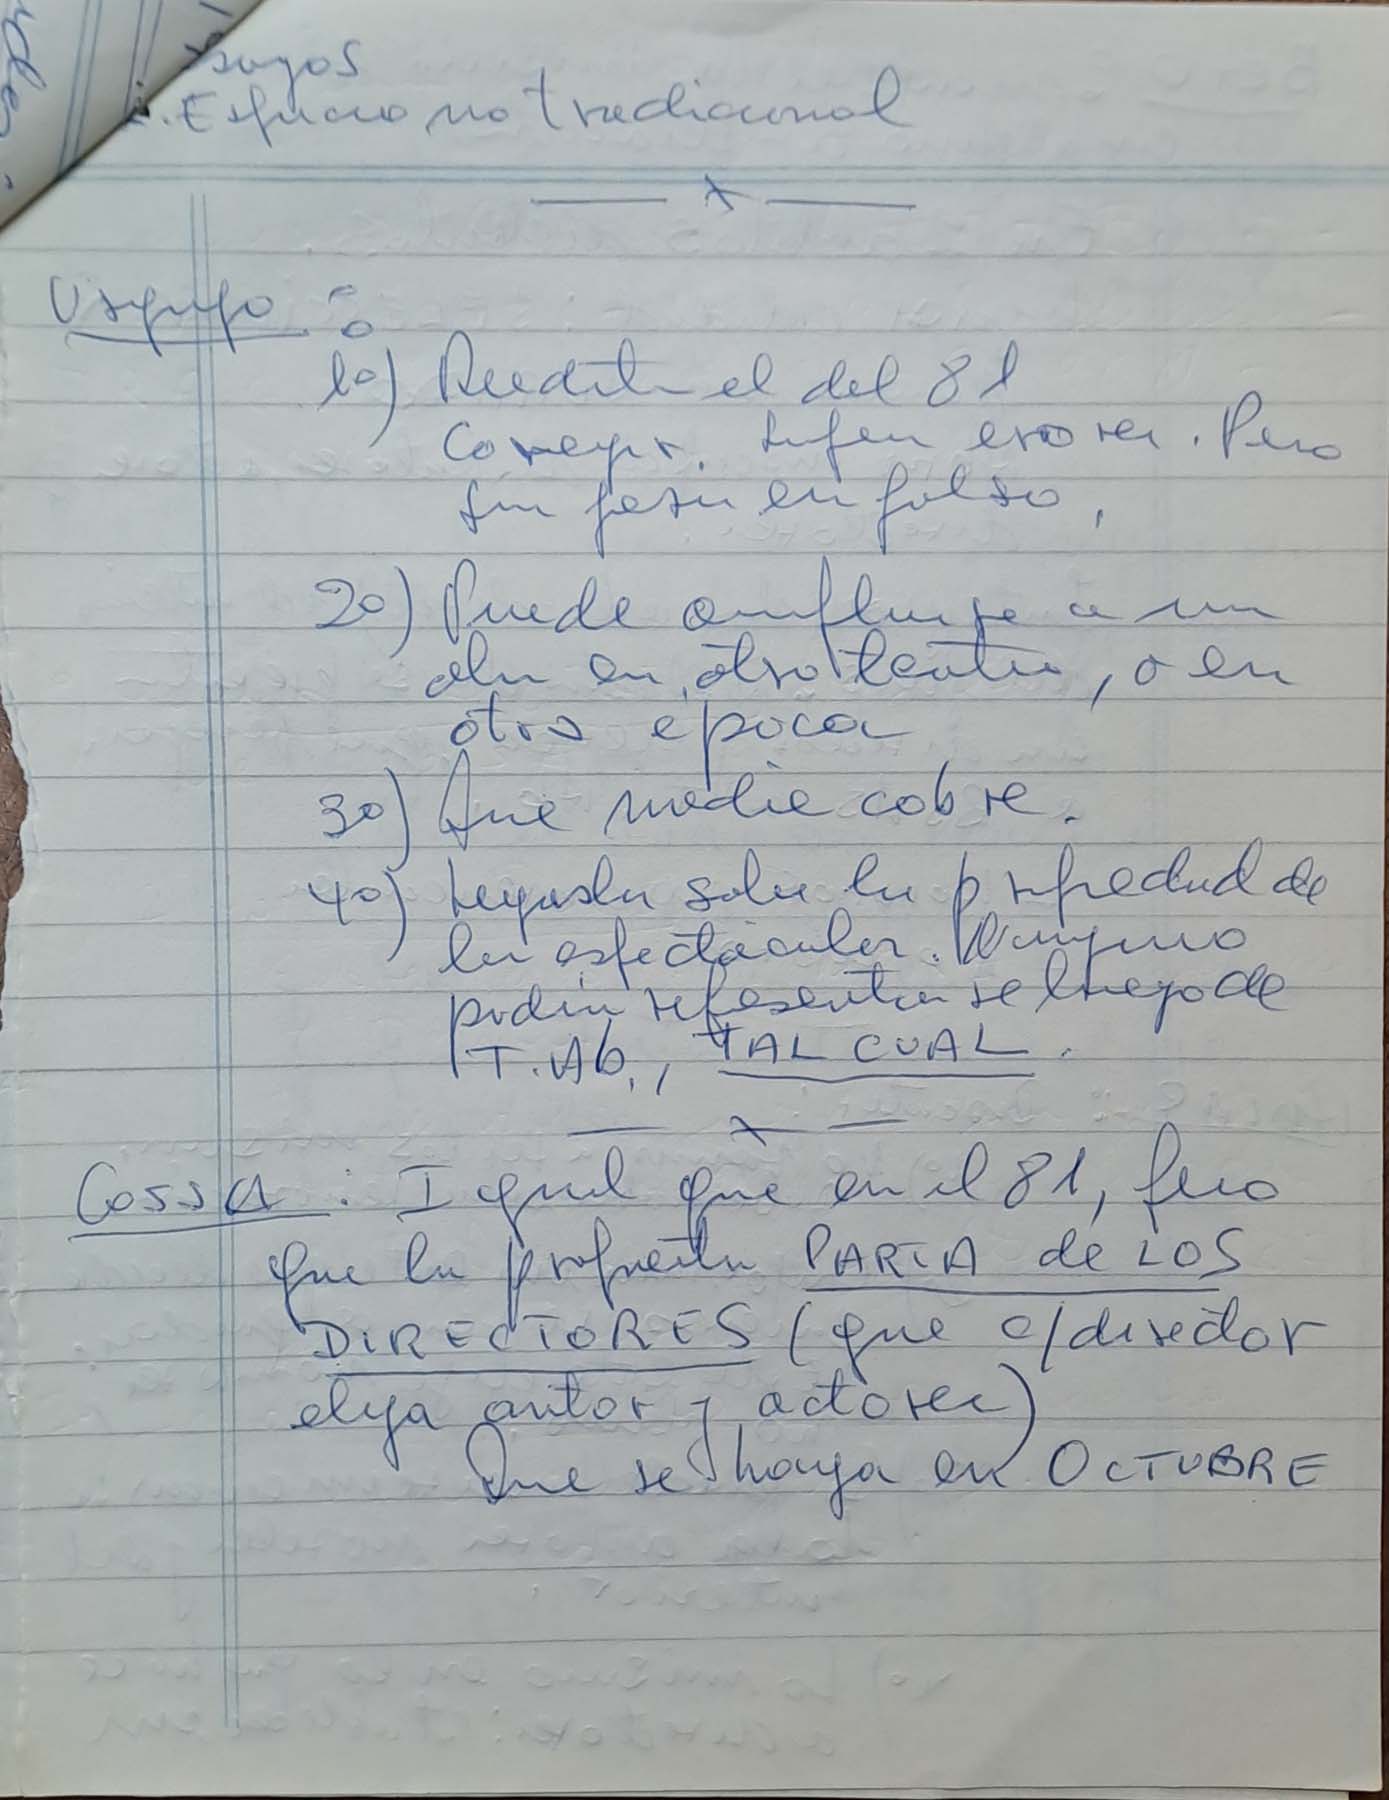 Espacio no tradicional
1o) Reeditar el del 81
Corregir. errores. Pero
sin pasu en falso,
2o) Puede
en otro teatro, o en
otra época
3o) Que nadie cobre.
4o) Legislar sobre la propiedad de
los espectáculos. Ninguno
podrá representarse luego de
T. Ab., TAL CUAL.
Cossa: Igual que en el 81, pero
que la propuesta PARTA de LOS
DIRECTORES (que c/director
elija autor y actores)
Que se haga en OCTUBRE